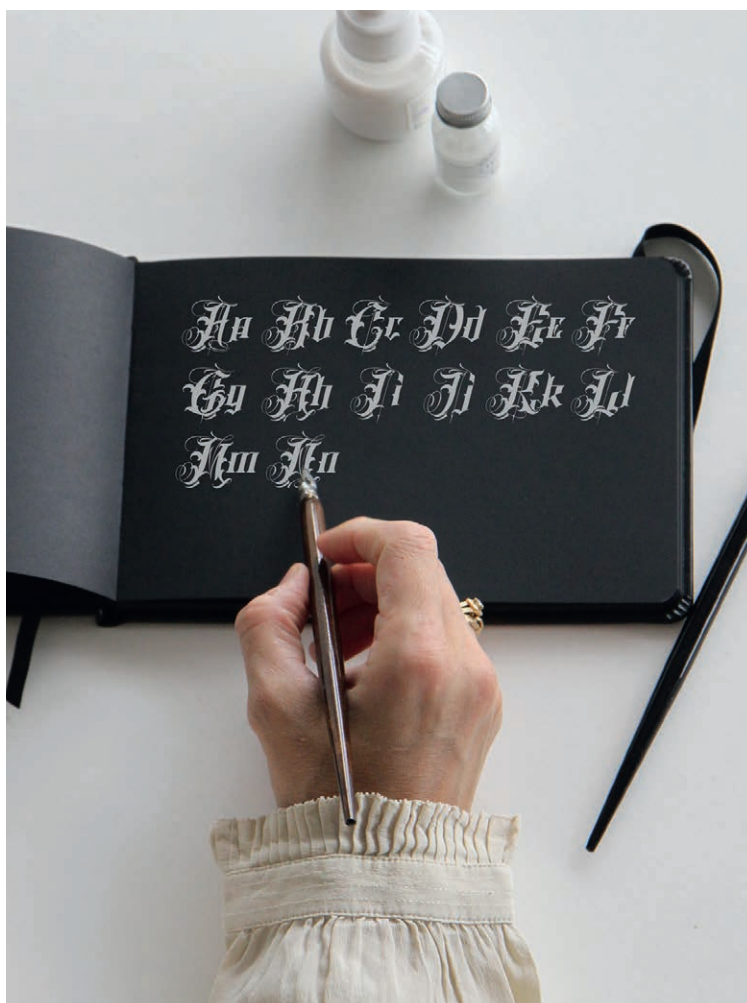 Aa Bb Cc Dd Ee Ff
Gg Hh Ii Jj Kk Ll
Mm Nn